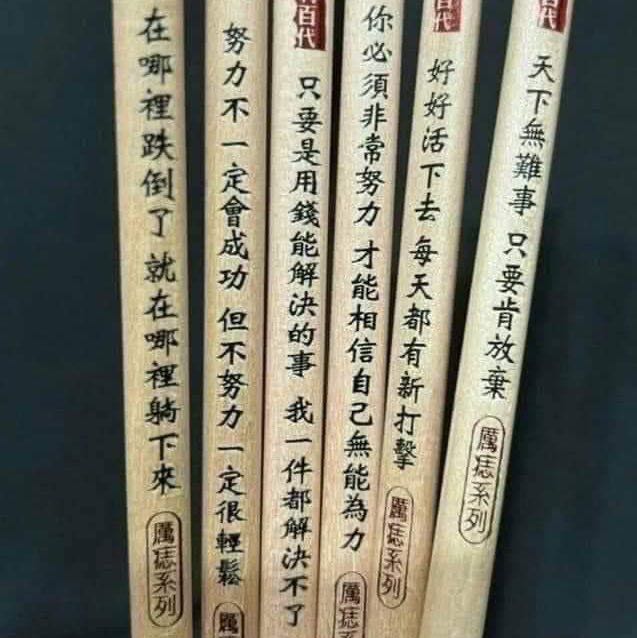 在哪裡跌倒了 就在哪裡躺下來
厲痣系列
努力不一定會成功 但不努力一定很輕鬆
厲
百代
只要是用錢能解決的事 我一件都解決不了
你必須非常努力 才能相信自己無能為力
厲痣
百代
好好活下去 每天都有新打擊
厲痣系列
代
天下無難事 只要肯放棄
厲痣系列